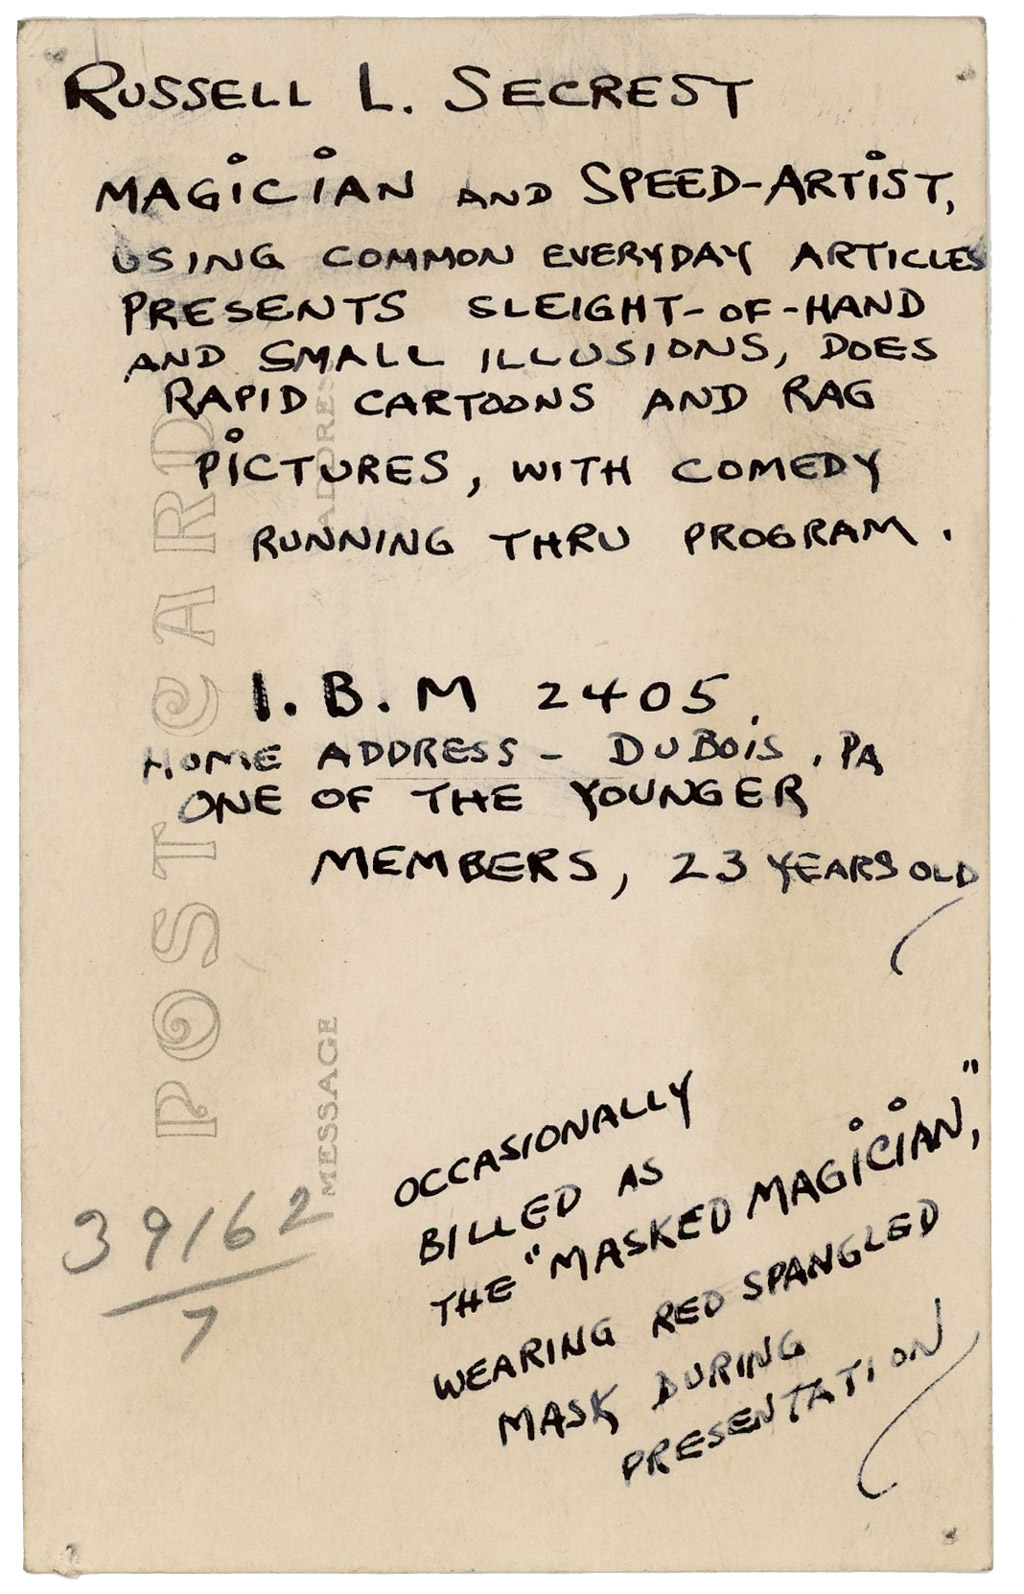 RUSSELL L. SECREST
MAGICIAN AND SPEED-ARTIST,
USING COMMON EVERYDAY ARTICLES
PRESENTS SLEIGHT-OF-HAND
AND SMALL ILLUSIONS, DOES
RAPID CARTOONS AND RAG
PICTURES, WITH COMEDY
RUNNING THRU PROGRAM.
I.B.M 2405.
HOME ADDRESS - DUBOIS, PA
ONE OF THE YOUNGER
MEMBERS, 23 YEARS OLD
OCCASIONALLY
BILLED AS
THE "MASKED MAGICIAN,"
WEARING RED SPANGLED
MASK DURING
PRESENTATION
39162
7
POST CARD
MESSAGE
ADDRESS